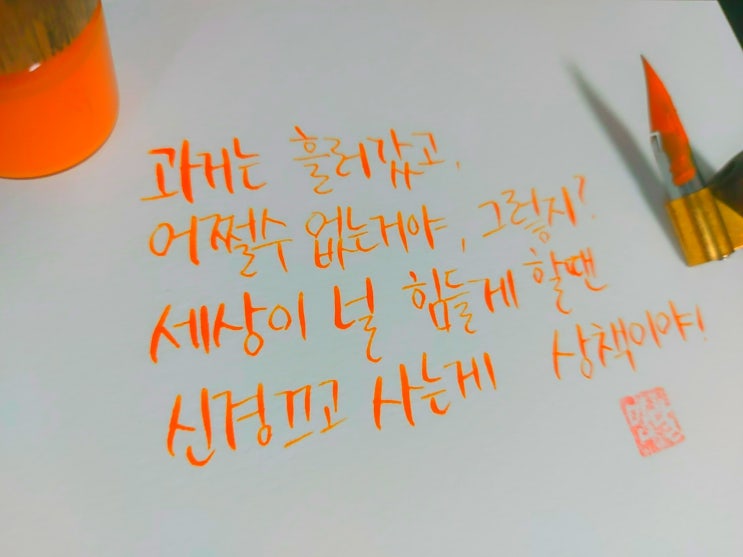 과거는 흘러갔고,
어쩔수 없는거야, 그렇지?
세상이 널 힘들게 할땐
신경끄고 사는게 상책이야!